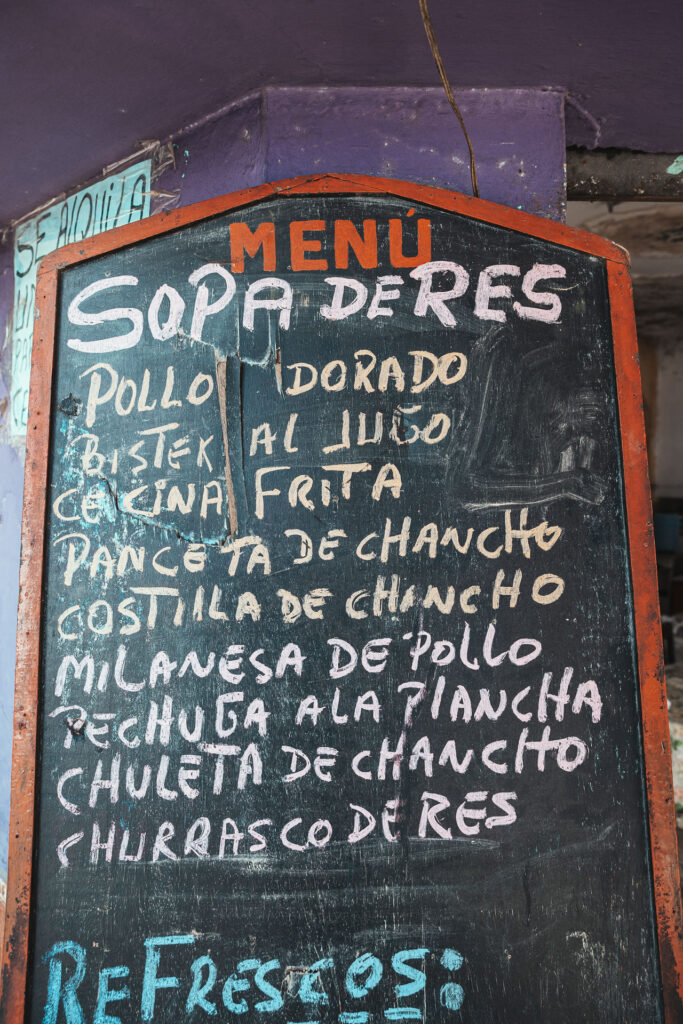 SE ALQUILA
MENÚ
SOPA DE RES
POLLO DORADO
BISTEK AL JUGO
CECINA FRITA
PANCETA DE CHANCHO
COSTILLA DE CHANCHO
MILANESA DE POLLO
PECHUGA ALA PLANCHA
CHULETA DE CHANCHO
CHURRASCO DE RES
REFRESCOS: